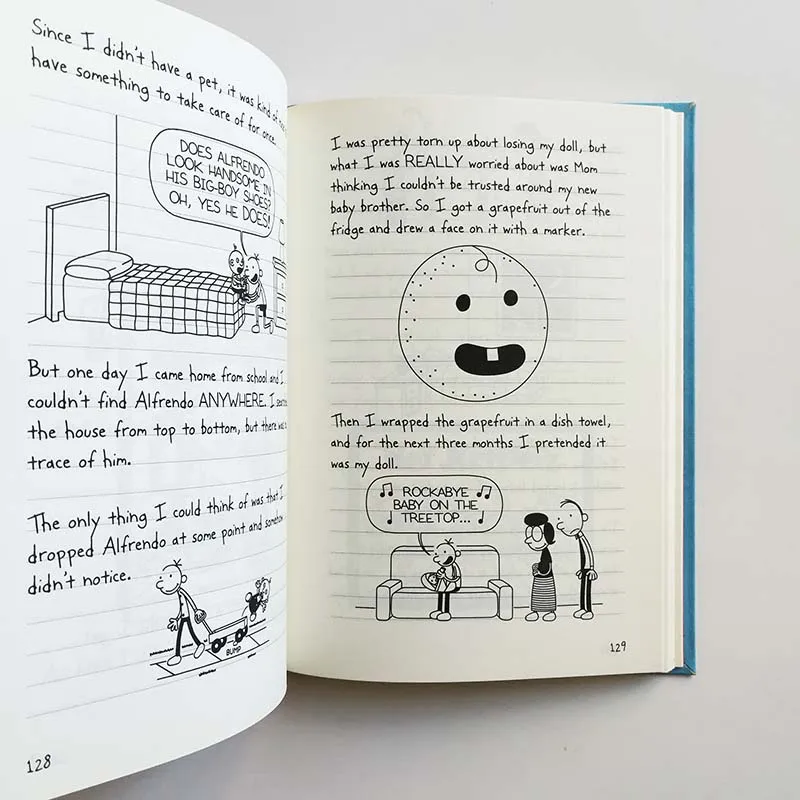 Since I didn't have a pet, it was kind of
have something to take care of for once.
DOES ALFRENDO
LOOK HANDSOME IN
HIS BIG-BOY SHOES?
OH, YES HE DOES!
But one day I came home from school and I
couldn't find Alfrendo ANYWHERE. I
the house from top to bottom, but there
trace of him.
The only thing I could think of was that I
dropped Alfrendo at some point and
didn't notice.
BUMP
128
I was pretty torn up about losing my doll, but
what I was REALLY worried about was Mom
thinking I couldn't be trusted around my new
baby brother. So I got a grapefruit out of the
fridge and drew a face on it with a marker.
Then I wrapped the grapefruit in a dish towel,
and for the next three months I pretended it
was my doll.
ROCKABYE
BABY ON THE
TREETOP...
129